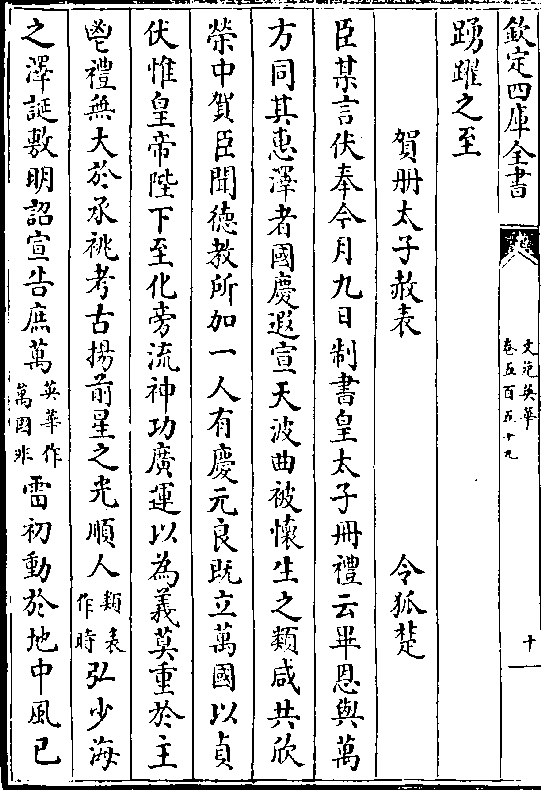 欽定四庫全書
文苑英華
卷五百五十九
十
踴躍之至
賀册太子赦表
令狐楚
臣某言伏奉今月九日制書皇太子冊禮云畢恩與萬
方同其惠澤者國慶遐宣天波曲被懷生之類咸共欣
榮中賀臣聞德教所加一人有慶元良既立萬國以貞
伏惟皇帝陛下至化旁流神功廣運以為義莫重於主
鬯禮無大於承祧考古揚前星之光順人類表作時弘少海
之澤誕敷明詔宣告庶萬英華作萬國非雷初動於地中風已